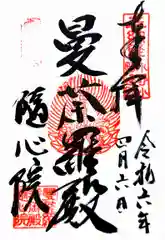 奉拝
令和六年
四月六日
曼荼羅殿
隨心院